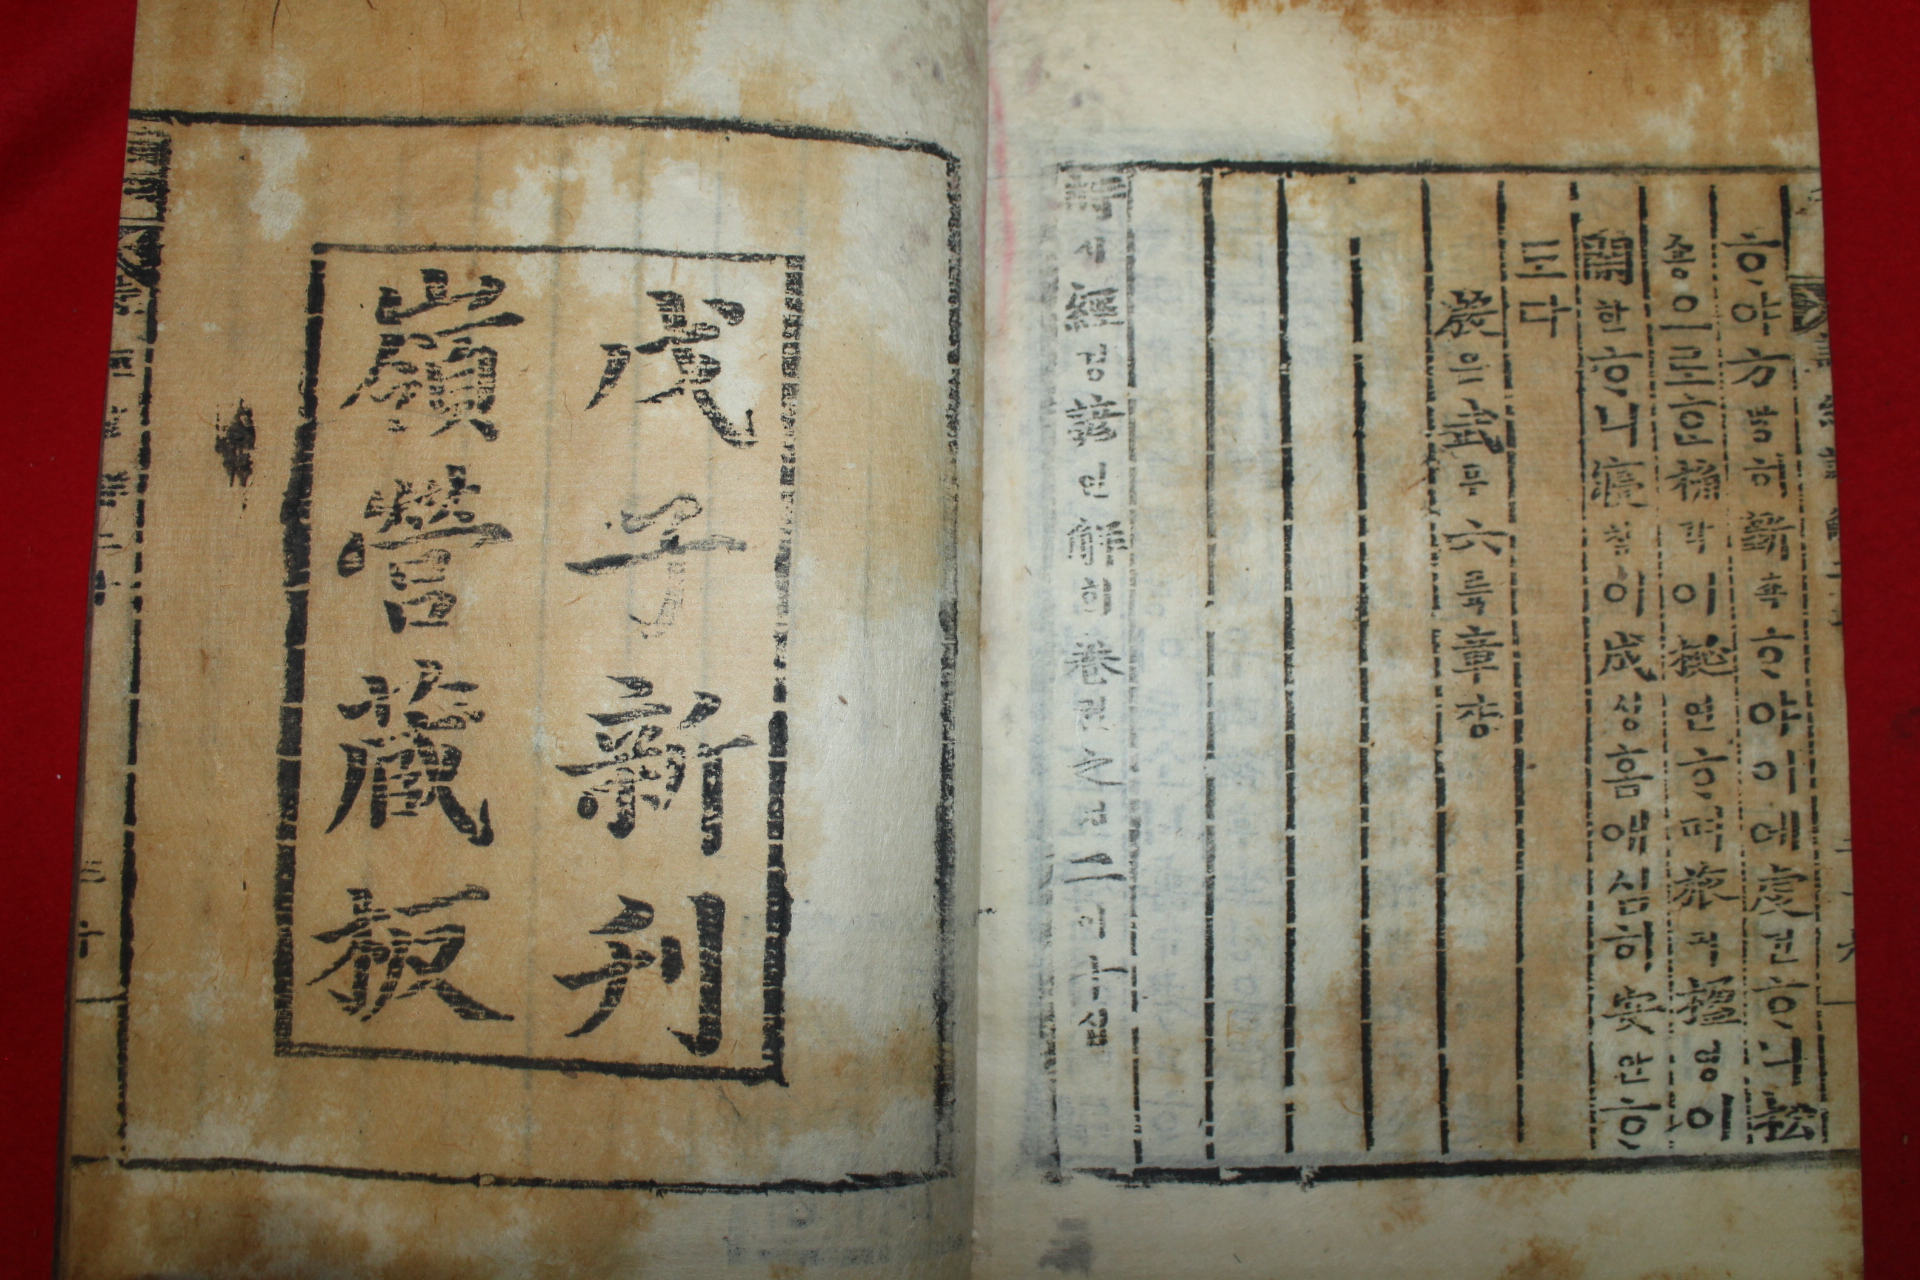 ᄒᆞ야方방히斲착ᄒᆞ야이예虔건ᄒᆞ니松
숑이로ᄒᆞᆫ桷각이梴연ᄒᆞ며旅려楹영이
閑한ᄒᆞ니寢침이成셩흠애심히安안ᄒᆞ
도다
殷은武무六륙章쟝
詩시經경諺언解ᄒᆡ卷권之지二이十십
戊子新刊
嶺營藏板